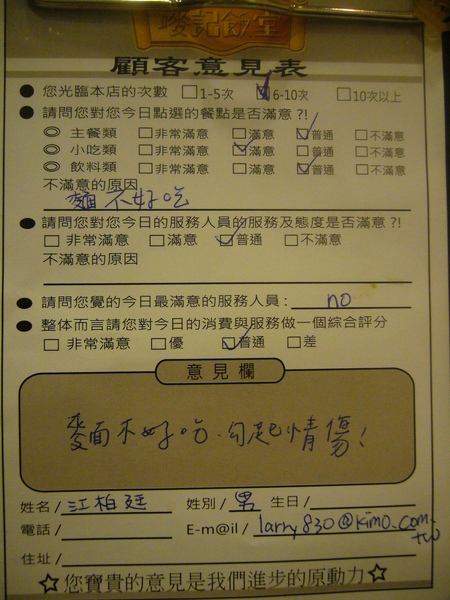 嘜記飯堂
顧客意見表
● 您光臨本店的次數 □1-5次 ☑6-10次 □10次以上
● 請問您對您今日點選的餐點是否滿意?!
◎ 主餐類 □非常滿意 □滿意 ☑普通 □不滿意
◎ 小吃類 □非常滿意 ☑滿意 □普通 □不滿意
◎ 飲料類 □非常滿意 □滿意 ☑普通 □不滿意
不滿意的原因
麵不好吃
● 請問您對您今日的服務人員的服務及態度是否滿意?!
□ 非常滿意 □滿意 ☑普通 □不滿意
不滿意的原因
● 請問您覺的今日最滿意的服務人員: no
● 整体而言請您對今日的消費與服務做一個綜合評分
□ 非常滿意 □優 ☑普通 □差
意見欄
麵不好吃、勾起情傷!
姓名/江柏廷 姓別/男 生日/
電話/ E-m@il/larry830@kimo.com.tw
住址/
☆您寶貴的意見是我們進步的原動力☆